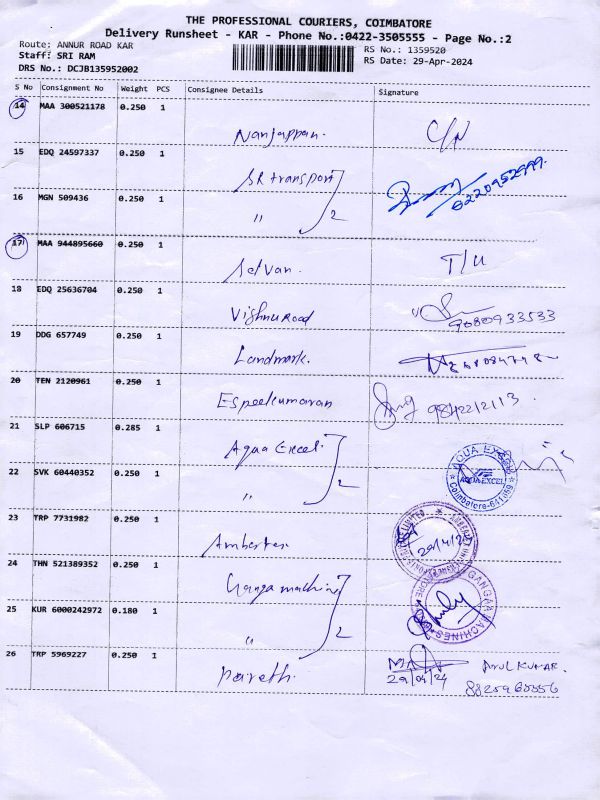 THE PROFESSIONAL COURIERS, COIMBATORE
Delivery Runsheet - KAR - Phone No.:0422-3505555 - Page No.:2
Route: ANNUR ROAD KAR
RS No.: 1359520
Staff: SRI RAM
RS Date: 29-Apr-2024
DRS No.: DCJB135952002
S No Consignment No Weight PCS Consignee Details Signature
14 MAA 300521178 0.250 1
Nanjappan. C/N
15 EDQ 24597337 0.250 1
SR transport
16 MGN 509436 0.250 1
" 2
17 MAA 944895660 0.250 1
Selvan. T/U
18 EDQ 25636704 0.250 1
Vishnu Road 9080933533
19 DDG 657749 0.250 1
Landmark.
20 TEN 2120961 0.250 1
9842212113.
21 SLP 606715 0.285 1
Aqua Excel
AQUA EXCEL
Coimbatore-641 059
22 SVK 60440352 0.250 1
" 2
23 TRP 7731982 0.250 1
29/4/24
24 THN 521389352 0.250 1
Ganga machine
GANGA MACHINES
25 KUR 6000242972 0.180 1
" 2
26 TRP 5969227 0.250 1
29/04/24
ARUL KUMAR.